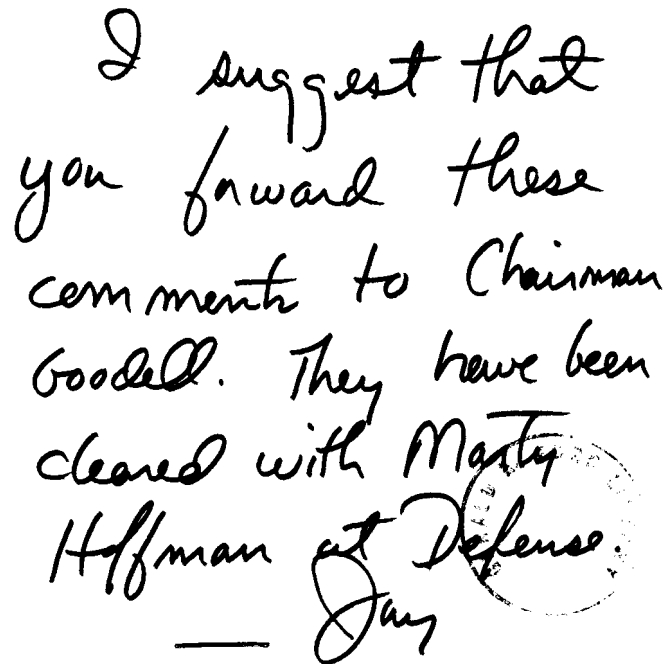 I suggest that
you forward these
comments to Chairman
Goodell. They have been
cleared with Marty
Hoffman at Defense.
Jay